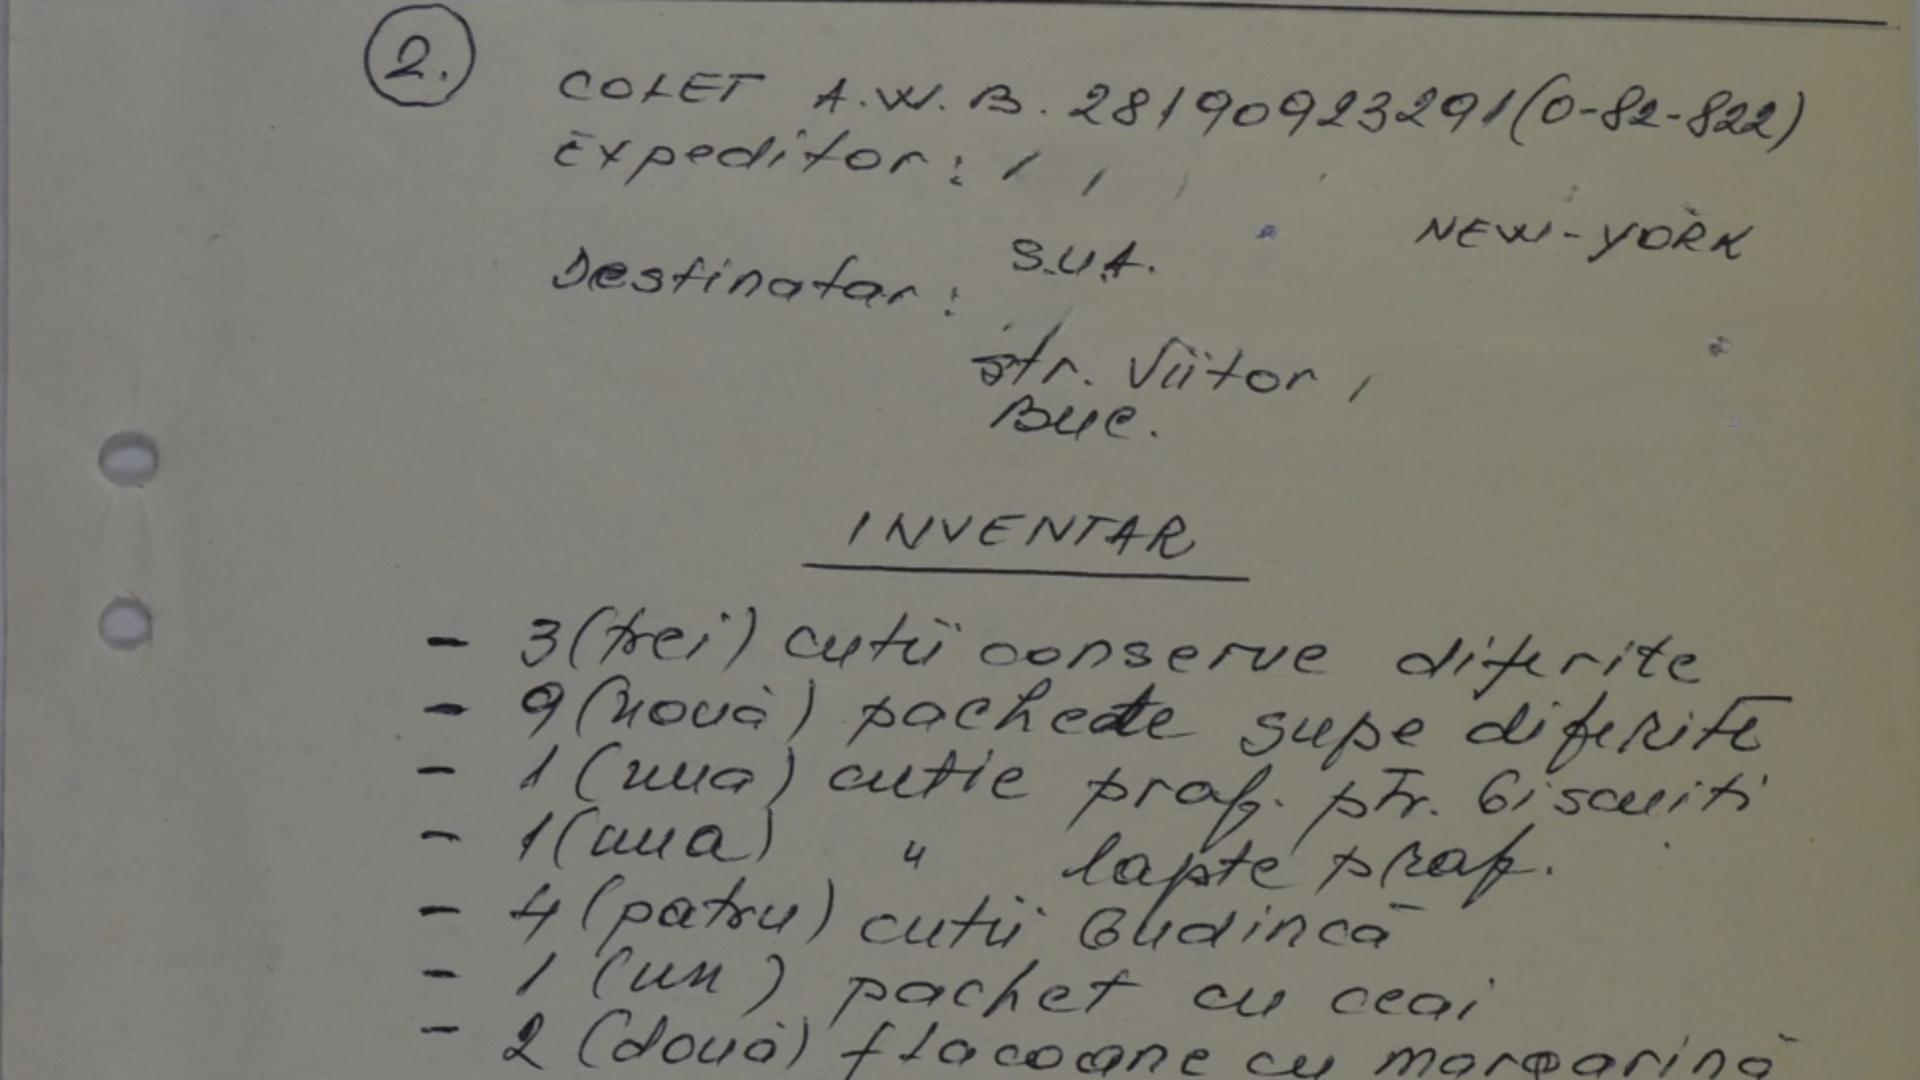 2.
COLET A.W.B. 28190923291 (0-82-822)
Expeditor: , ,
NEW-YORK
S.U.A.
Destinatar:
str. Viitor,
Buc.
INVENTAR
- 3 (trei) cutii conserve diferite
- 9 (nouă) pachete supe diferite
- 1 (una) cutie praf. ptr. biscuiti
- 1 (una) " lapte praf.
- 4 (patru) cutii budincă
- 1 (un) pachet cu ceai
- 2 (două) flacoane cu margarină